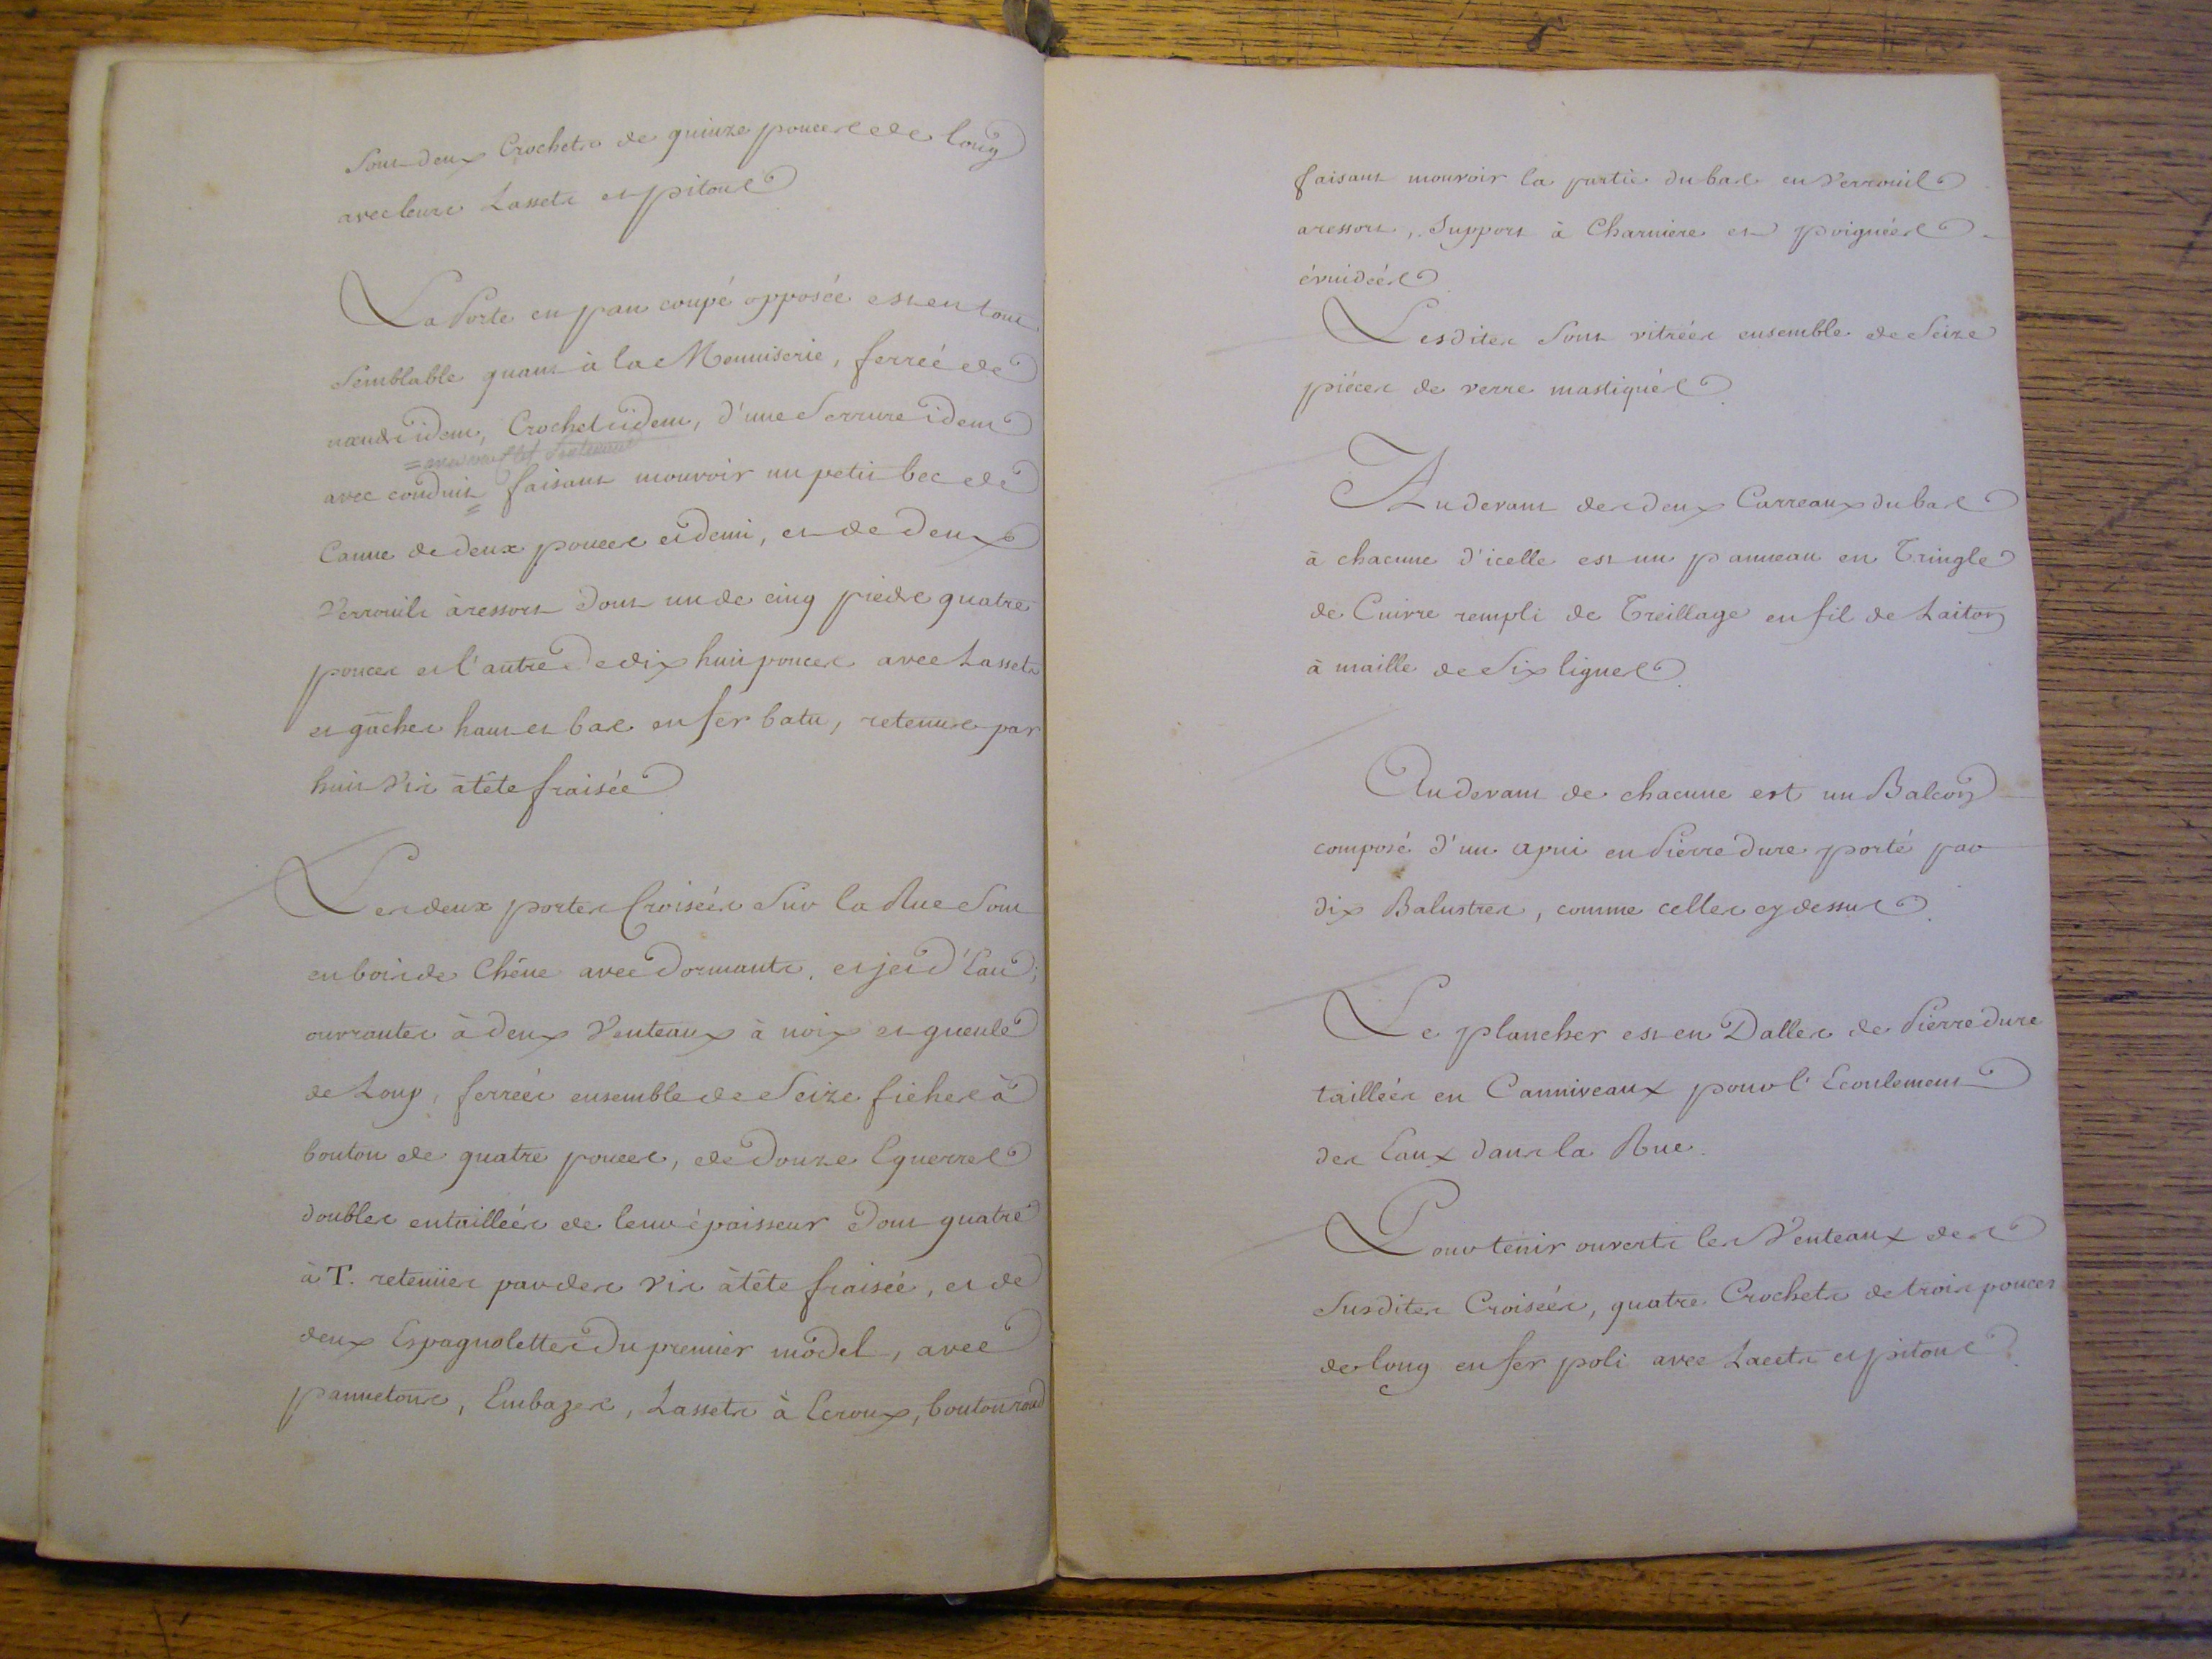 Sont deux Crochets de quinze pouces de long
avec leurs Lassets et pitons
La Porte en pan coupé opposée est en tout
Semblable quant à la Menuiserie, ferrée de
nœuds idem, Crochets idem, d'une Serrure idem
avec conduit faisant mouvoir un petit bec de
Canne de deux pouces et demi, et de deux
Verrouils à ressort dont un de cinq pieds quatre
pouces et l'autre de dix huit pouces avec Lassets
et gâches haut et bas en fer batu, retenus par
huit Vis à tête fraisée
Les deux portes Croisées Sur la Rue Sont
en bois de Chêne avec Dormants, et jet d'Eau;
ouvrantes à deux Venteaux à noix et gueule
de Loup, ferrées ensemble de Seize fiches à
bouton de quatre pouces, de Douze Equerres
doubles entaillées de leur épaisseur dont quatre
à T. retenües par des vis à tête fraisée, et de
deux Espagnolettes du premier model, avec
pannetons, Embazes, Lassets à Ecroux, bouton rond
faisant mouvoir la partie du bas en Verrouil
a ressort, Support à Charniere et poignées
évuidées
Lesdites Sont vitrées ensemble de Seize
piéces de verre mastiqués
Au devant des deux Carreaux du bas
à chacune d'icelle est un panneau en Tringle
de Cuivre rempli de Treillage en fil de Laiton
à maille de Six lignes
Au devant de chacune est un Balcon
composé d'un apui en Pierre dure porté par
dix Balustres, comme celles cy dessus
Le plancher est en Dalles de Pierre dure
taillées en Canniveaux pour l'Ecoulement
des Eaux dans la Rue.
Pour tenir ouverts les Venteaux des
Susdites Croisées, quatre Crochets de trois pouces
de long en fer poli avec Lacets et pitons